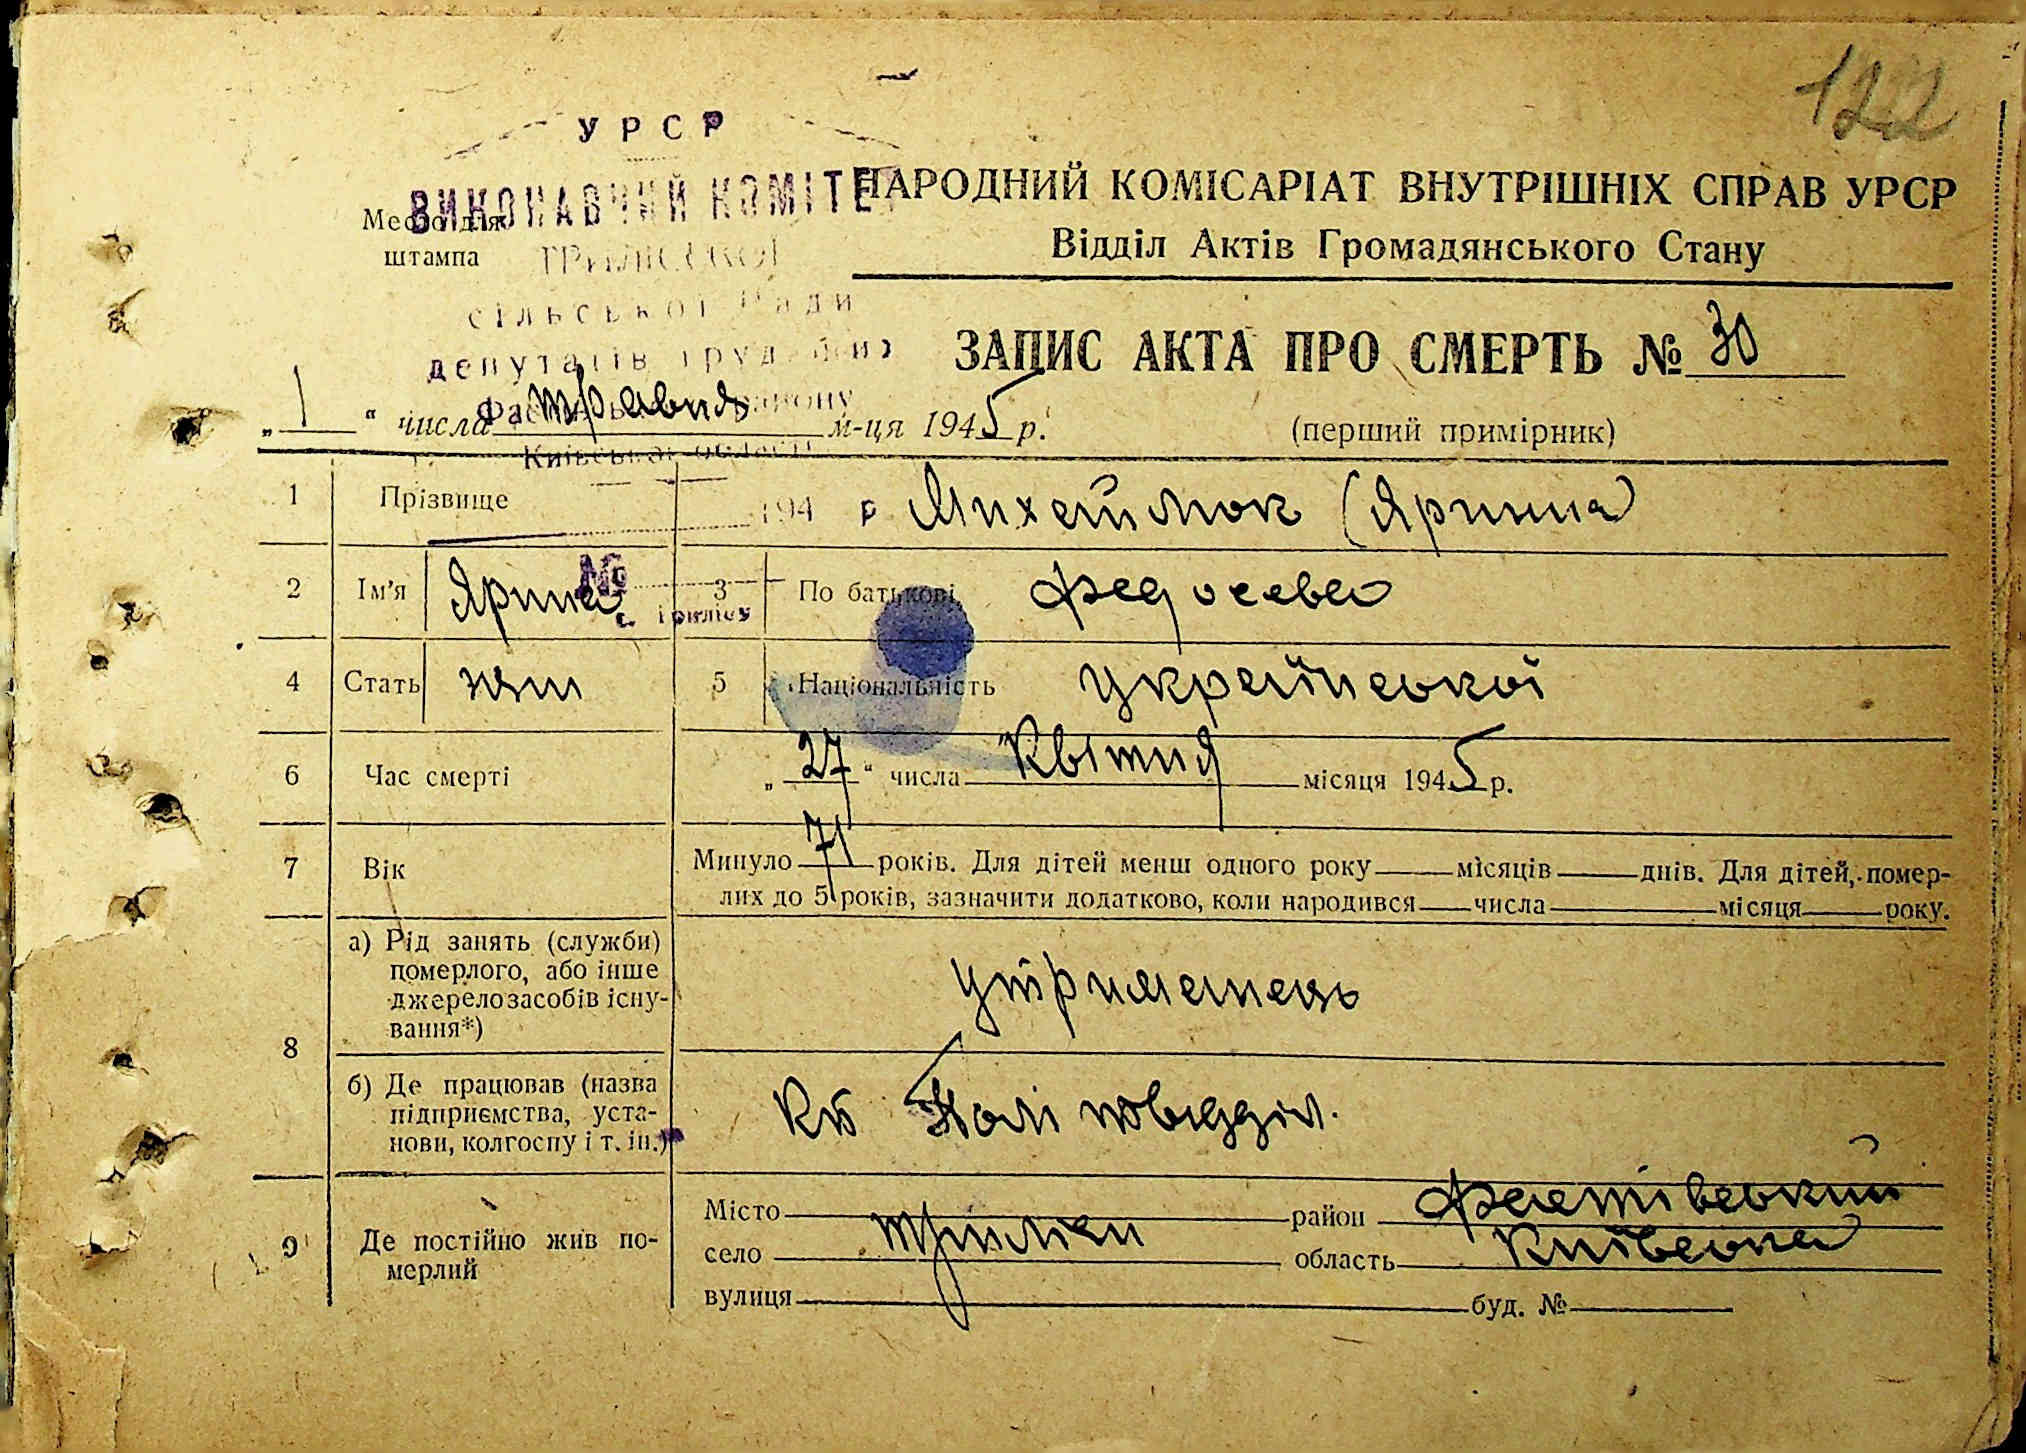 122
УРСР
ВИКОНАВЧИЙ КОМІТЕТ
ТРИЛІСЬКОЇ
сільської Ради
депутатів трудящих
Київської області
194 р
№
с. Триліси
Место для
штампа
НАРОДНИЙ КОМІСАРІАТ ВНУТРІШНІХ СПРАВ УРСР
Відділ Актів Громадянського Стану
ЗАПИС АКТА ПРО СМЕРТЬ № 30
„1“ числа травня м-ця 1945 р.
(перший примірник)
1 Прізвище Михайлюк (Ярина)
2 Ім'я Ярина 3 По батькові Федосева
4 Стать жін 5 Національність української
6 Час смерті „27“ числа Квітня місяця 1945 р.
7 Вік Минуло 71 років. Для дітей менш одного року місяців днів. Для дітей, помер-
лих до 5 років, зазначити додатково, коли народився числа місяця року.
8 а) Рід занять (служби)
померлого, або інше
джерело засобів існу-
вання*)
утриманець
б) Де працював (назва
підприємства, уста-
нови, колгоспу і т. ін.)
Кп Політовідділ.
9 Де постійно жив по-
мерлий
Місто район Фастівський
село Триліси область Київська
вулиця буд. №